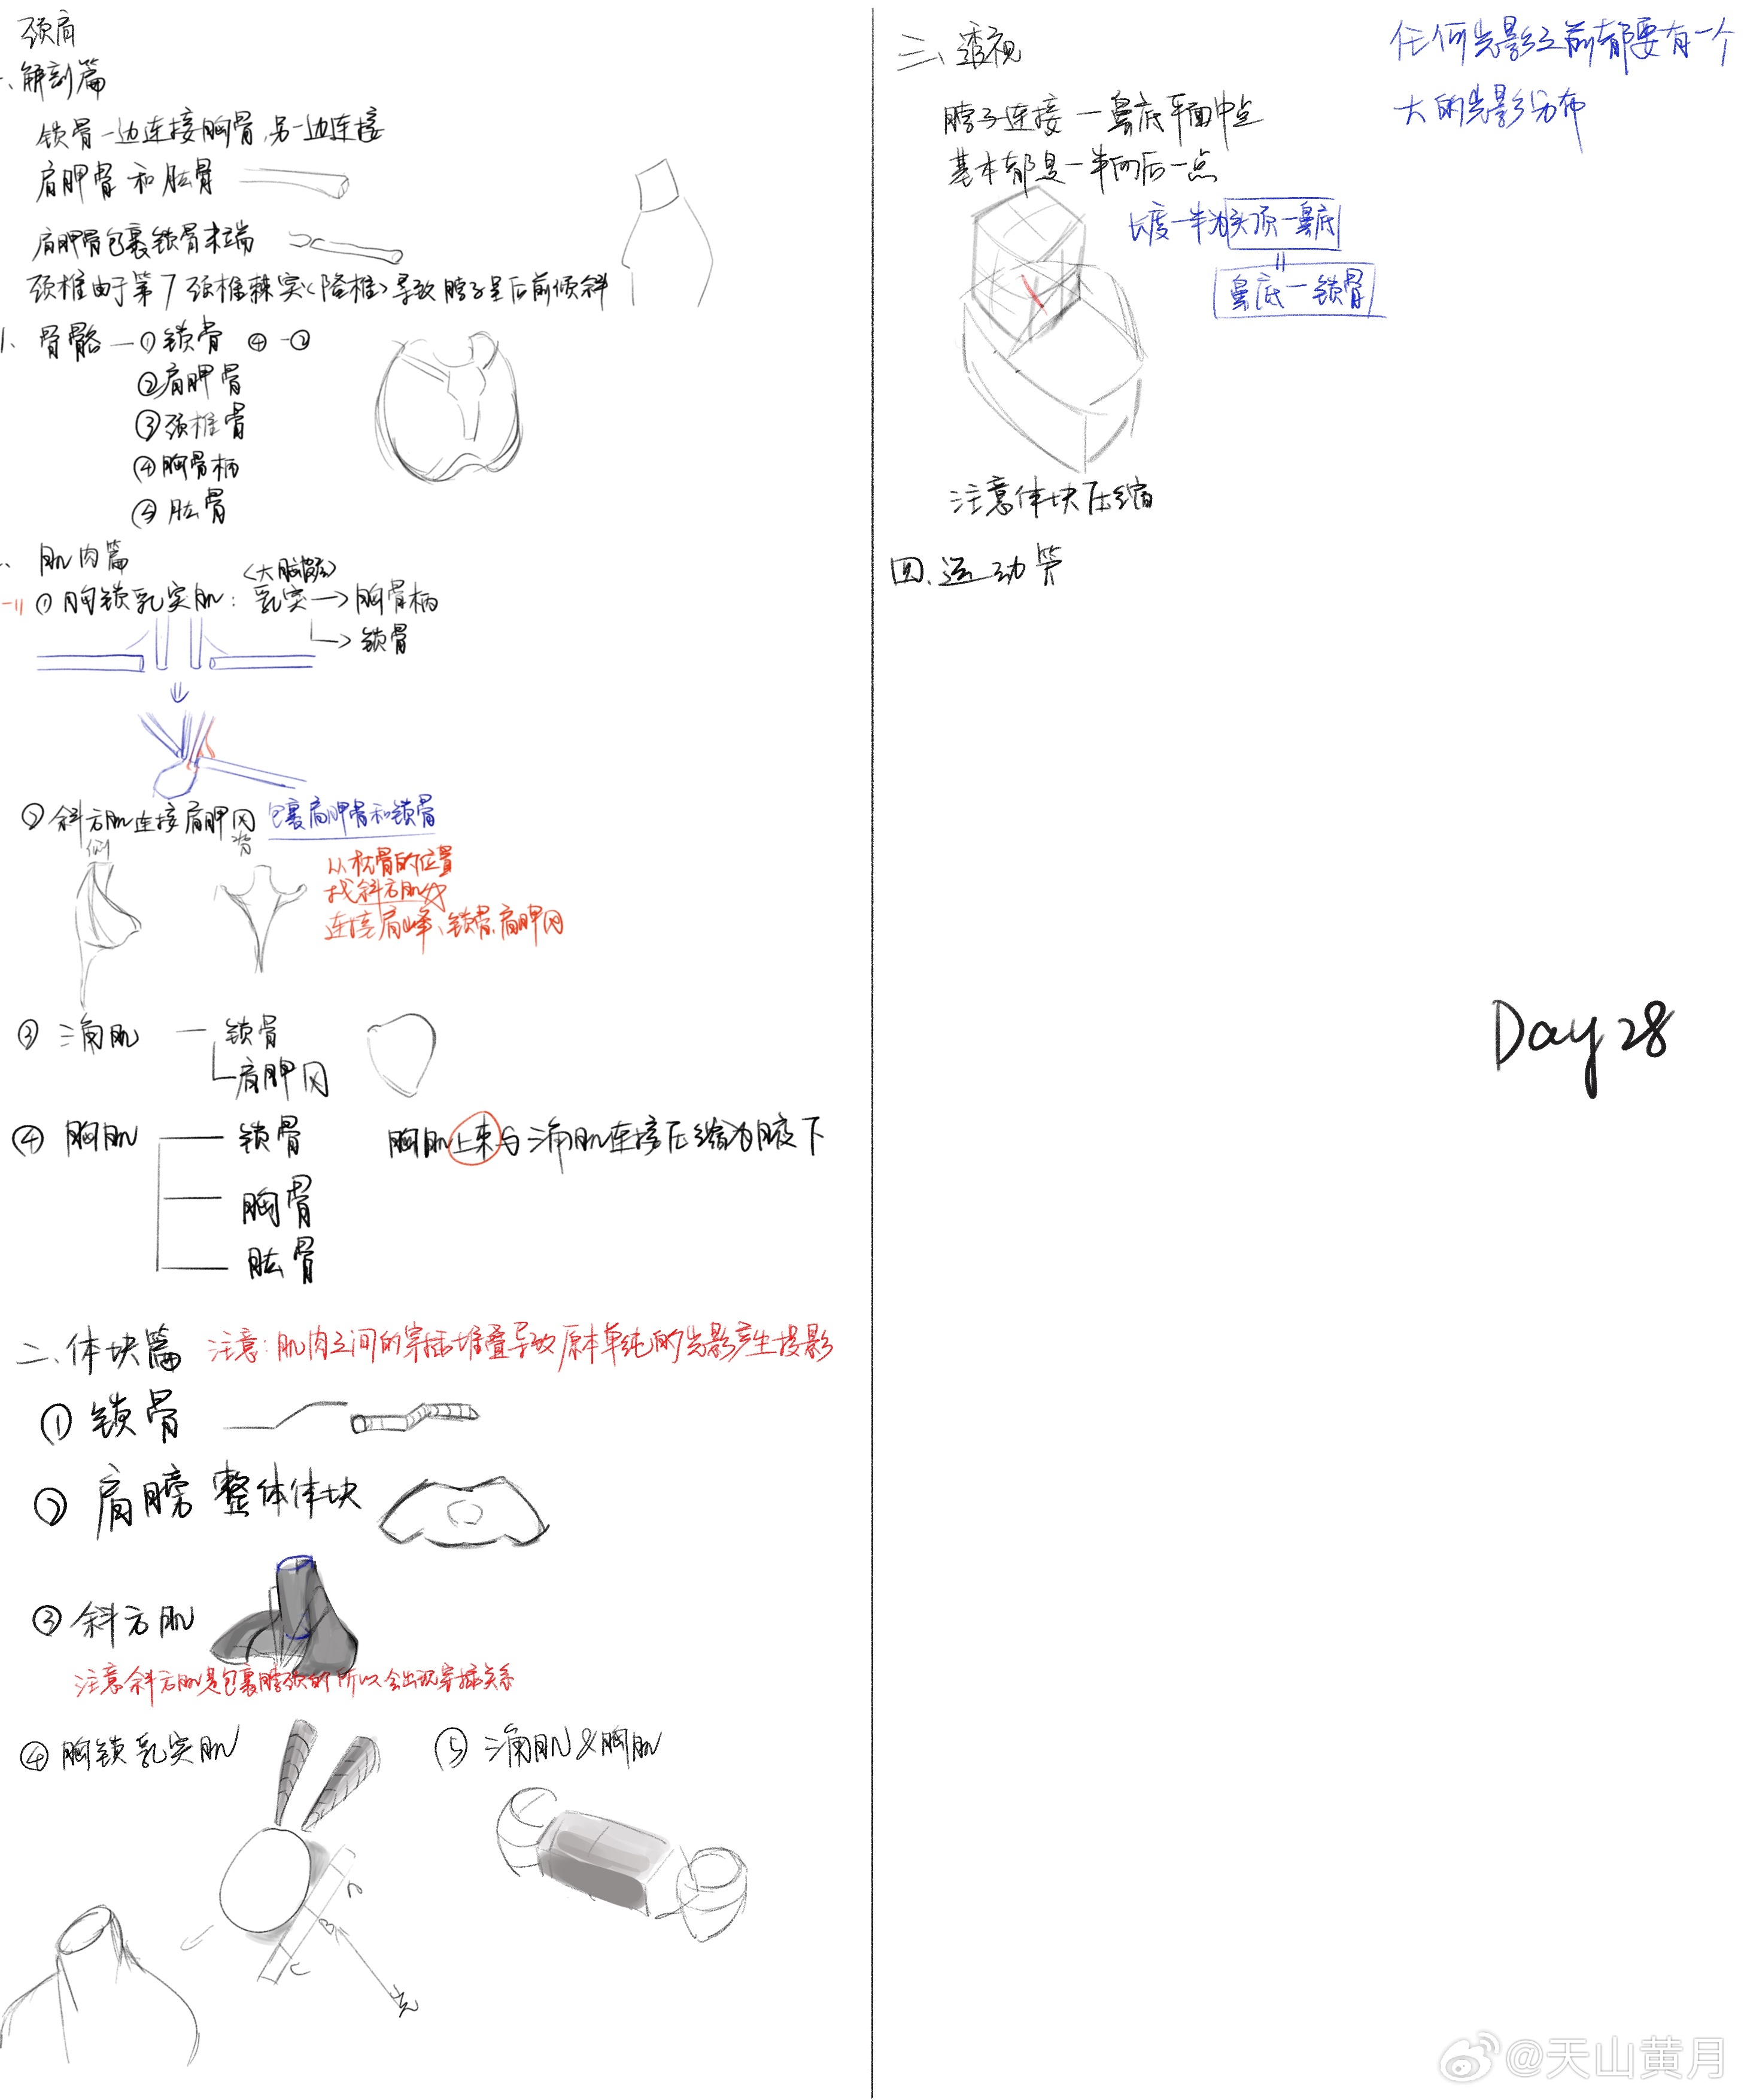 颈肩
、解剖篇
锁骨一边连接胸骨,另一边连接
肩胛骨和肱骨
肩胛骨包裹锁骨末端
颈椎由于第7颈椎棘突(隆椎)导致脖子呈后前倾斜
1、骨骼—①锁骨 ④-②
②肩胛骨
③颈椎骨
④胸骨柄
⑤肱骨
、肌肉篇
①胸锁乳突肌:乳突→胸骨柄
→锁骨
②斜方肌连接肩胛冈 包裹肩胛骨和锁骨
侧 背
从枕骨的位置
找斜方肌
连接肩峰、锁骨、肩胛冈
③三角肌—锁骨
肩胛冈
④胸肌—锁骨 胸肌上束与三角肌连接压缩为腋下
胸骨
肱骨
二、体块篇 注意:肌肉之间的穿插堆叠导致原本单纯的光影产生投影
①锁骨
②肩膀整体体块
③斜方肌
注意斜方肌是包裹脖颈的所以会出现穿插关系
④胸锁乳突肌 ⑤三角肌&胸肌
光
三、透视
脖子连接—鼻底平面中点
基本都是一半向后一点
长度一半为头顶—鼻底
=
鼻底—锁骨
注意体块压缩
四、运动篇
任何光影之前都要有一个
大的光影分布
Day 28
@天山黄月